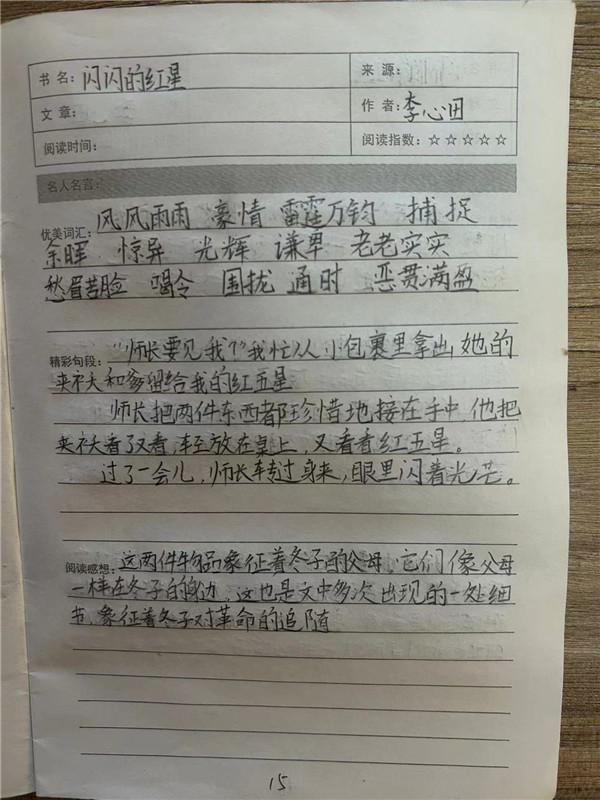 书 名: 闪闪的红星
来 源:
文 章:
作 者: 李心田
阅读时间:
阅读指数: ☆☆☆☆☆
名人名言:
优美词汇: 风风雨雨 豪情 雷霆万钧 捕捉
余晖 惊异 光辉 谦卑 老老实实
愁眉苦脸 喝令 围拢 通时 恶贯满盈
精彩句段: “师长要见我?”我忙从小包裹里拿出她的
夹袄和爹留给我的红五星
师长把两件东西都珍惜地接在手中,他把
夹袄看了又看,轻放在桌上,又看看红五星。
过了一会儿,师长转过身来,眼里闪着光芒。
阅读感想: 这两件物品象征着冬子的父母,它们像父母
一样在冬子的身边,这也是文中多次出现的一处细
节,象征着冬子对革命的追随
15